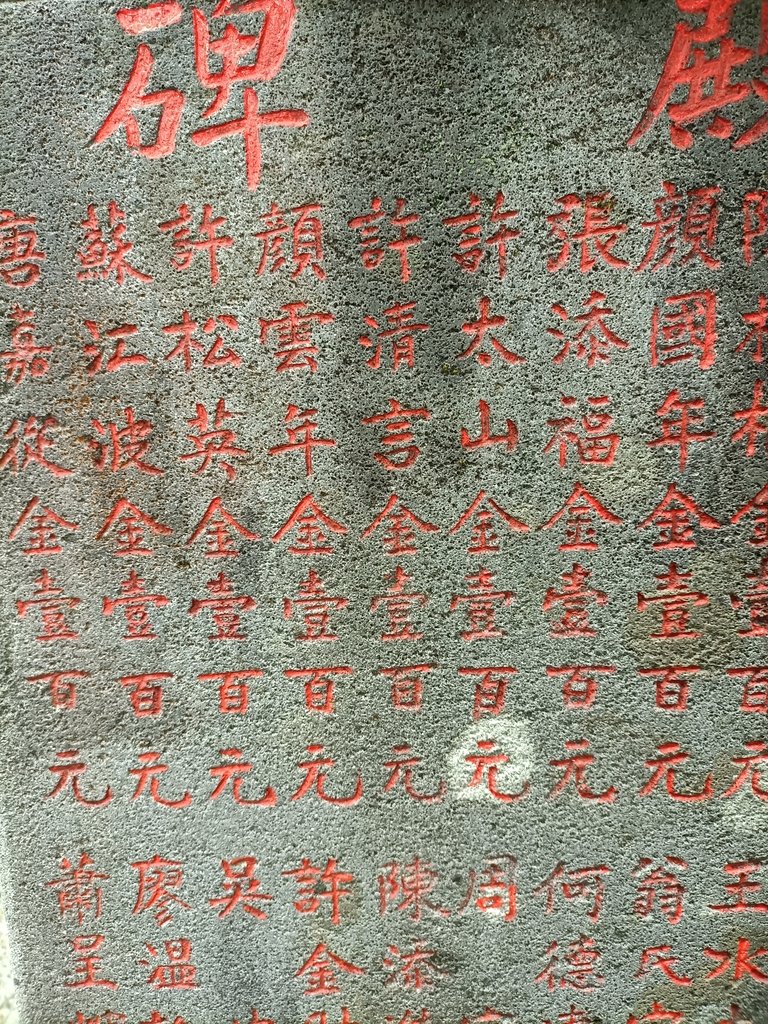 殿碑
金壹百元
顏國年金壹百元
張添福金壹百元
許太山金壹百元
許清言金壹百元
顏雲年金壹百元
許松英金壹百元
蘇江波金壹百元
唐嘉從金壹百元
王水
翁氏
何德
周
陳添
許金
吳
廖温
蕭呈